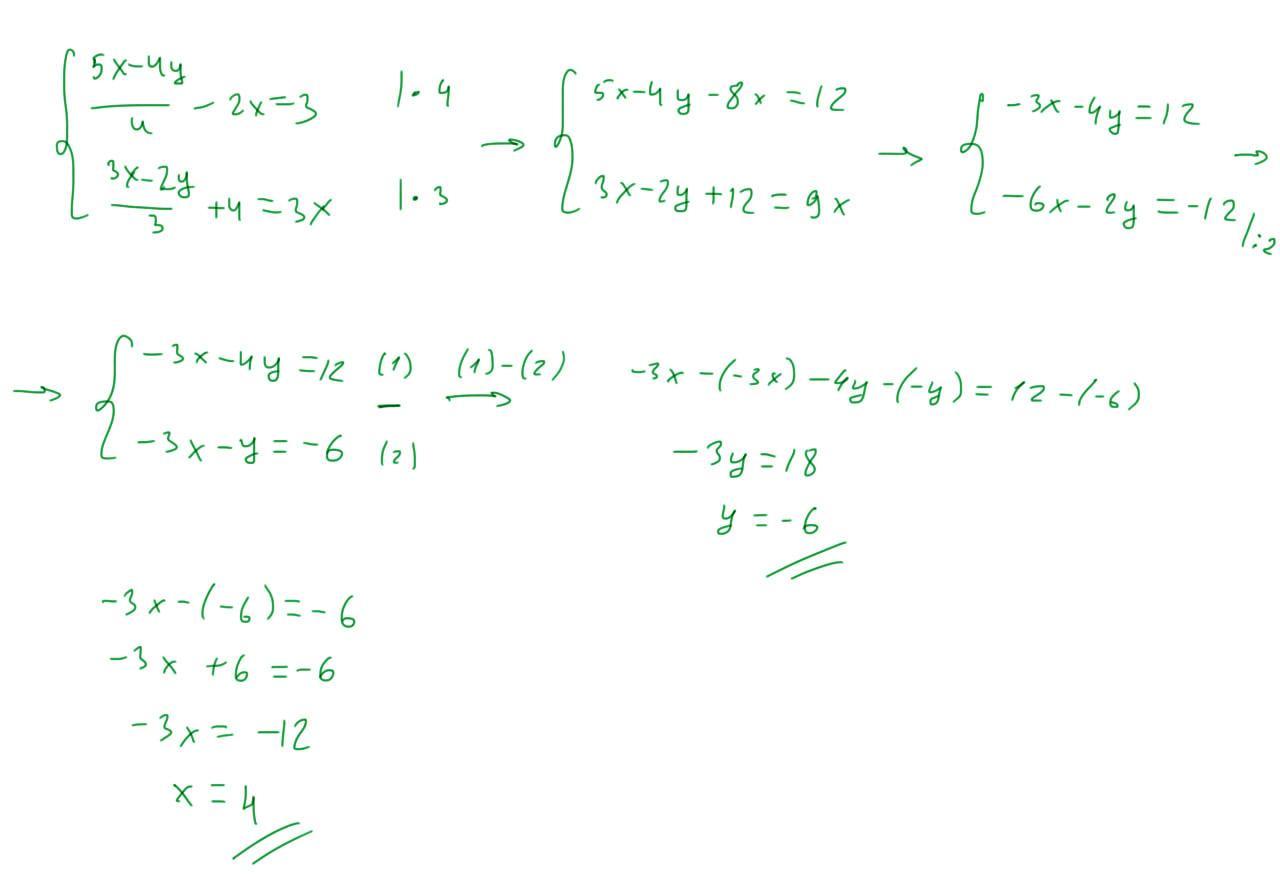 { (5x-4y)/4 - 2x = 3 |· 4
(3x-2y)/3 + 4 = 3x |· 3
→ { 5x-4y-8x = 12
3x-2y+12 = 9x
→ { -3x-4y = 12
-6x-2y = -12 /:2 →
→ { -3x-4y = 12 (1)
− (1)-(2) →
-3x-y = -6 (2)
-3x-(-3x)-4y-(-y) = 12-(-6)
-3y = 18
y = -6
-3x-(-6) = -6
-3x +6 = -6
-3x = -12
x = 4